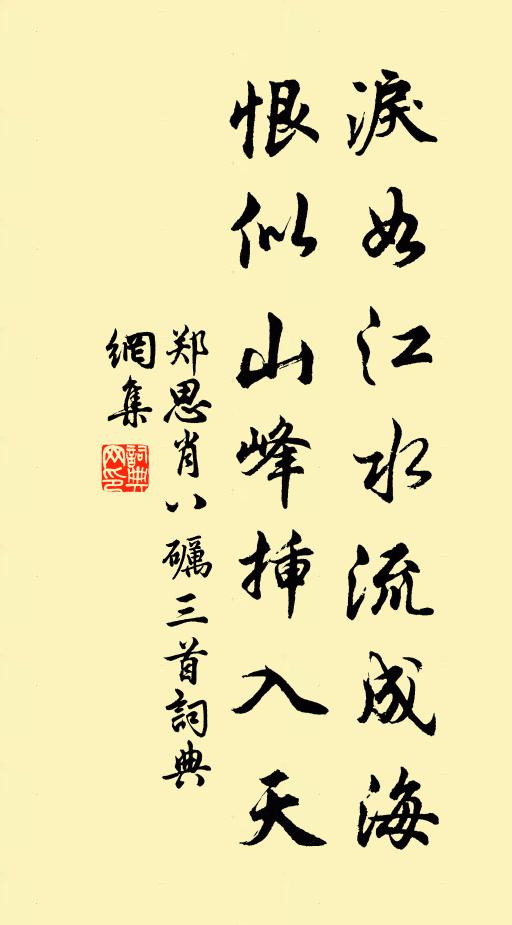 淚如江水流成海
恨似山峰揷入天
郑思肖八礪三首詞典
網集
詞典
网印